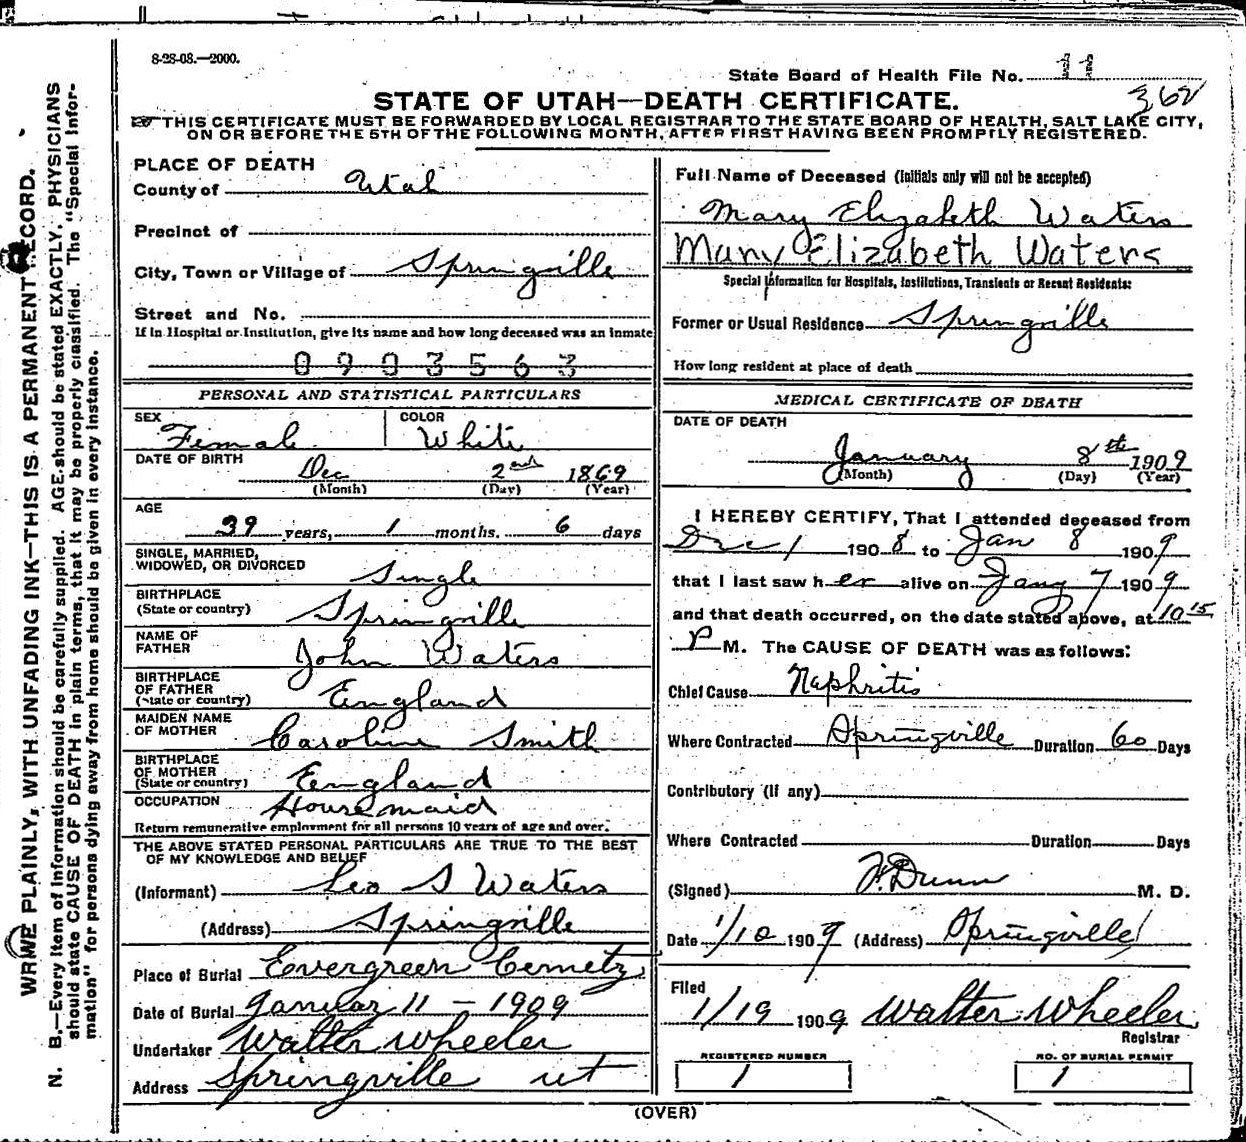 8-28-08.—2000.
State Board of Health File No. 11
362
STATE OF UTAH—DEATH CERTIFICATE.
THIS CERTIFICATE MUST BE FORWARDED BY LOCAL REGISTRAR TO THE STATE BOARD OF HEALTH, SALT LAKE CITY,
ON OR BEFORE THE 5TH OF THE FOLLOWING MONTH, AFTER FIRST HAVING BEEN PROMPTLY REGISTERED.
WRITE PLAINLY, WITH UNFADING INK—THIS IS A PERMANENT RECORD.
N. B.—Every item of information should be carefully supplied. AGE should be stated EXACTLY. PHYSICIANS
should state CAUSE OF DEATH in plain terms, that it may be properly classified. The "Special Infor-
mation" for persons dying away from home should be given in every instance.
PLACE OF DEATH
County of Utah
Precinct of
City, Town or Village of Springville
Street and No.
If in Hospital or Institution, give its name and how long deceased was an inmate
0903563
PERSONAL AND STATISTICAL PARTICULARS
SEX Female COLOR White
DATE OF BIRTH Dec 2nd 1869
(Month) (Day) (Year)
AGE
39 years, 1 months. 6 days
SINGLE, MARRIED,
WIDOWED, OR DIVORCED Single
BIRTHPLACE
(State or country) Springville
NAME OF
FATHER John Waters
BIRTHPLACE
OF FATHER
(State or country) England
MAIDEN NAME
OF MOTHER Caroline Smith
BIRTHPLACE
OF MOTHER
(State or country) England
OCCUPATION Housemaid
Return remunerative employment for all persons 10 years of age and over.
THE ABOVE STATED PERSONAL PARTICULARS ARE TRUE TO THE BEST
OF MY KNOWLEDGE AND BELIEF
(Informant) Leo S Waters
(Address) Springville
Place of Burial Evergreen Cemetz
Date of Burial Januar 11 - 1909
Undertaker Walter Wheeler
Address Springville ut
Full Name of Deceased (Initials only will not be accepted)
Mary Elizabeth Waters
Mary Elizabeth Waters
Special Information for Hospitals, Institutions, Transients or Recent Residents:
Former or Usual Residence Springville
How long resident at place of death
MEDICAL CERTIFICATE OF DEATH
DATE OF DEATH
January 8th 1909
(Month) (Day) (Year)
I HEREBY CERTIFY, That I attended deceased from
Dec 1 1908 to Jan 8 1909
that I last saw her alive on Jany 7 1909
and that death occurred, on the date stated above, at 10 15
P M. The CAUSE OF DEATH was as follows:
Chief Cause Nephritis
Where Contracted Springville Duration 60 Days
Contributory (If any)
Where Contracted Duration Days
(Signed) F. Dunn M. D.
Date 1/10 1909 (Address) Springville
Filed
1/19 1909 Walter Wheeler
Registrar
REGISTERED NUMBER
1
NO. OF BURIAL PERMIT
1
(OVER)